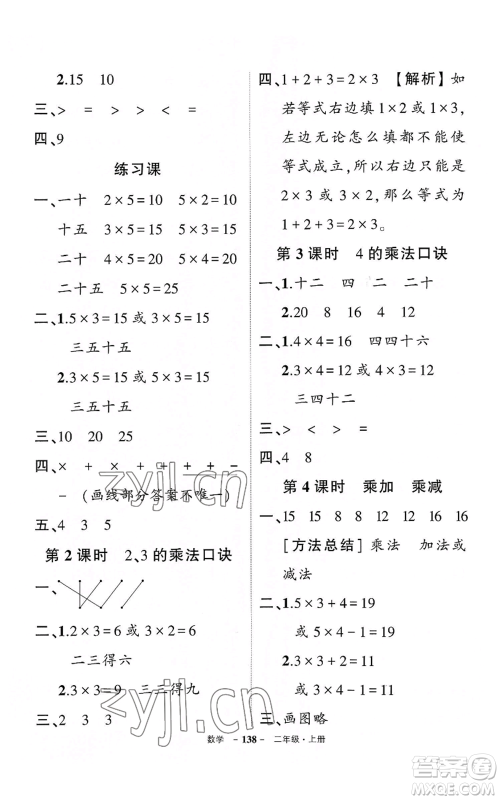 2.15 10
三、> = > > < =
四、9
练习课
一、一十 2×5=10 5×2=10
十五 3×5=15 5×3=15
二十 4×5=20 5×4=20
二十五 5×5=25
二、1.5×3=15 或 3×5=15
三五十五
2.3×5=15 或 5×3=15
三五十五
三、10 20 25
四、× + × + + + -
- (画线部分答案不唯一)
五、4 3 5
第2课时 2、3的乘法口诀
一、
二、1.2×3=6 或 3×2=6
二三得六
2.3×3=9 三三得九
三、2 3 3
四、1+2+3=2×3 【解析】如
若等式右边填1×2或1×3,
左边无论怎么填都不能使
等式成立,所以右边只能填
2×3或3×2,那么等式为
1+2+3=2×3。
第3课时 4的乘法口诀
一、1.十二 四 二 二十
2.20 8 12 16 4
二、1.4×4=16 四四十六
2.3×4=12 或 4×3=12
三四十二
三、> < > =
四、4 8
第4课时 乘加 乘减
一、15 15 8 12 12 16 16
[方法总结] 乘法 加法或
减法
二、1.5×3+4=19
或5×4-1=19
2.3×3+2=11
或3×4-1=11
三、画图略
数学 -138- 二年级·上册
zyjl.cn
zyjl.cn
答案圈